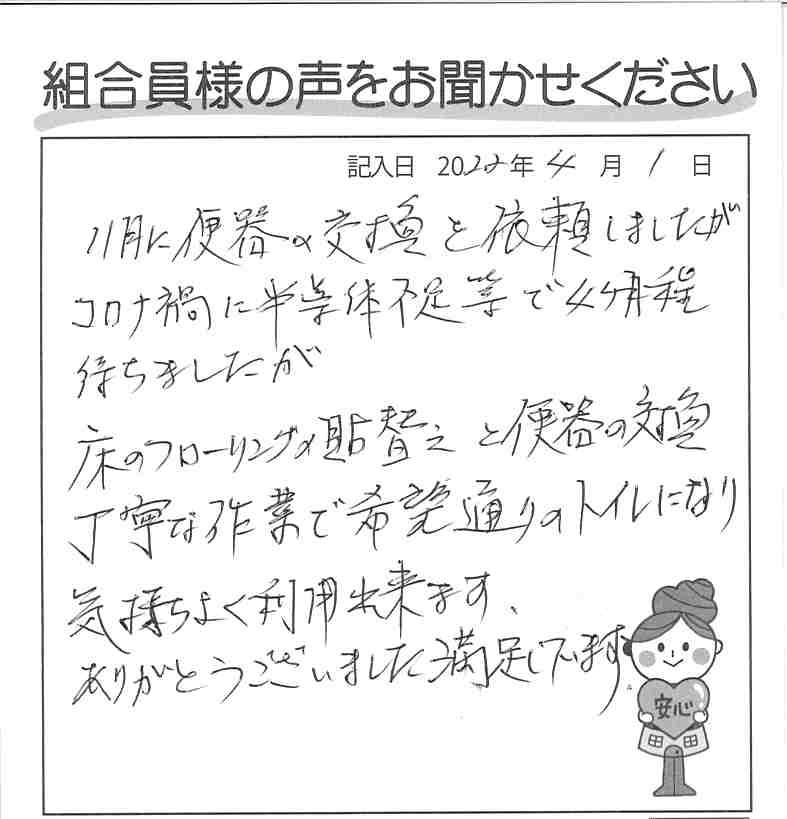 組合員様の声をお聞かせください
記入日 2022年 4 月 1 日
11月に便器の交換を依頼しましたが
コロナ禍に半導体不足等で4ヶ月程
待ちましたが
床のフローリングの貼替えと便器の交換
丁寧な作業で希望通りのトイレになり
気持ちよく利用出来ます、
ありがとうございました満足しています。
安心